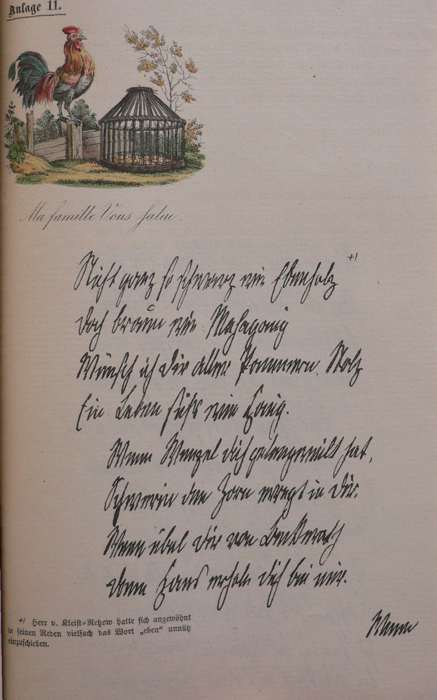 Anlage 11.
Ma famille Vous salue.
Nicht ganz so schwarz wie Ebenholz +)
Doch braun wie Mahagony
Wünsch ich Dir aller Pommern Stolz
Ein Leben süß wie Honig.
Wenn Wenzel dich gelangweilt hat,
Schwerin den Zorn erregt in Dir,
Wenn übel Dir von Beckerath
Dann Hans erhole dich bei mir.
+) Herr v. Kleist-Retzow hatte sich angewöhnt
in seinen Reden vielfach das Wort „eben“ unnütz
einzuschieben.